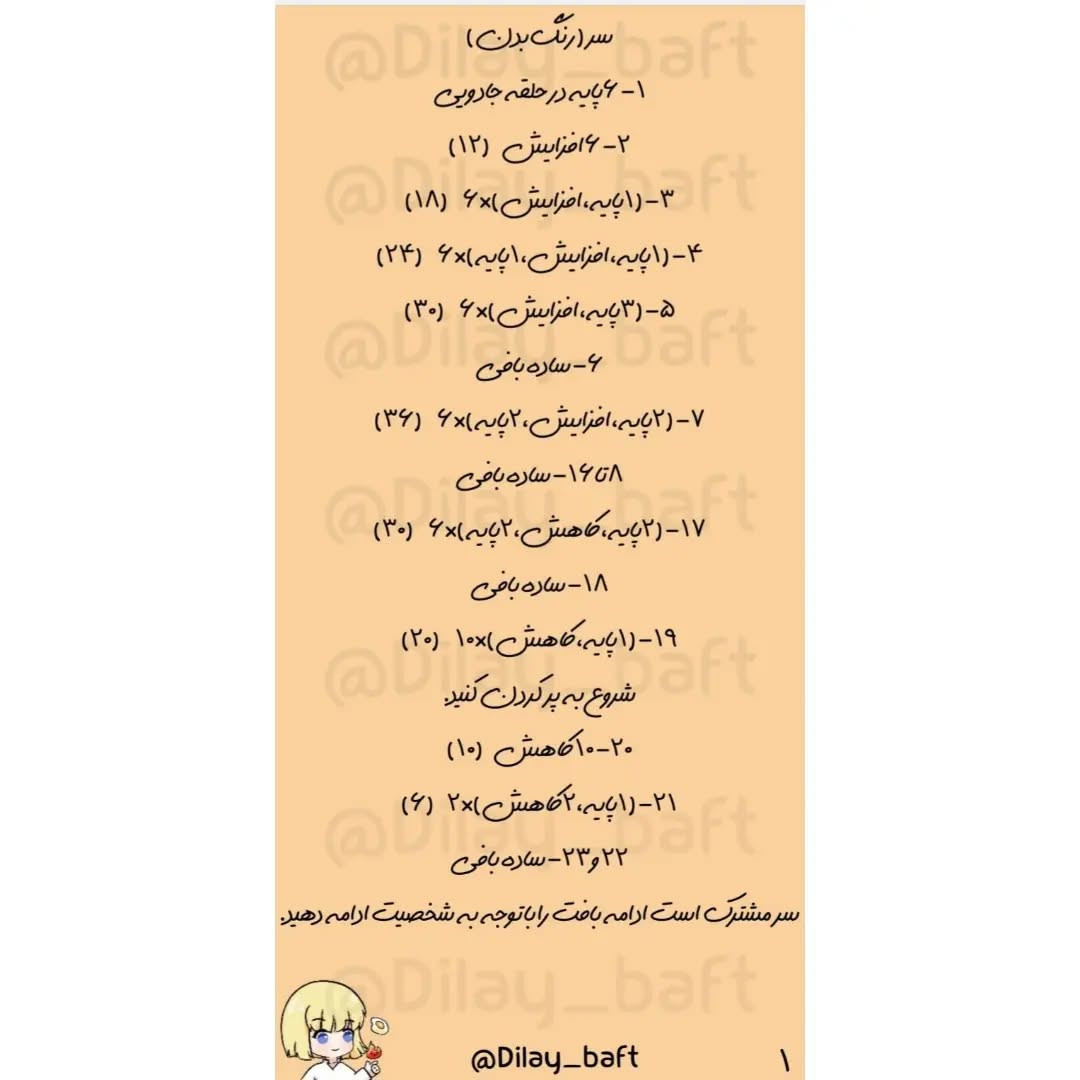 سر(رنگ بدن)
۱-۶پایه در حلقه جادویی
۲-۶افزایش (۱۲)
۳-(۱پایه،افزایش)×۶ (۱۸)
۴-(۱پایه،افزایش،۱پایه)×۶ (۲۴)
۵-(۳پایه،افزایش)×۶ (۳۰)
۶-ساده بافی
۷-(۲پایه،افزایش،۲پایه)×۶ (۳۶)
۸تا۱۶-ساده بافی
۱۷-(۲پایه،کاهش،۲پایه)×۶ (۳۰)
۱۸-ساده بافی
۱۹-(۱پایه،کاهش)×۱۰ (۲۰)
شروع به پر کردن کنید.
۲۰-۱۰کاهش (۱۰)
۲۱-(۱پایه،۲کاهش)×۲ (۶)
۲۲و۲۳-ساده بافی
سر مشترک است ادامه بافت را باتوجه به شخصیت ادامه دهید.
@Dilay_baft
۱